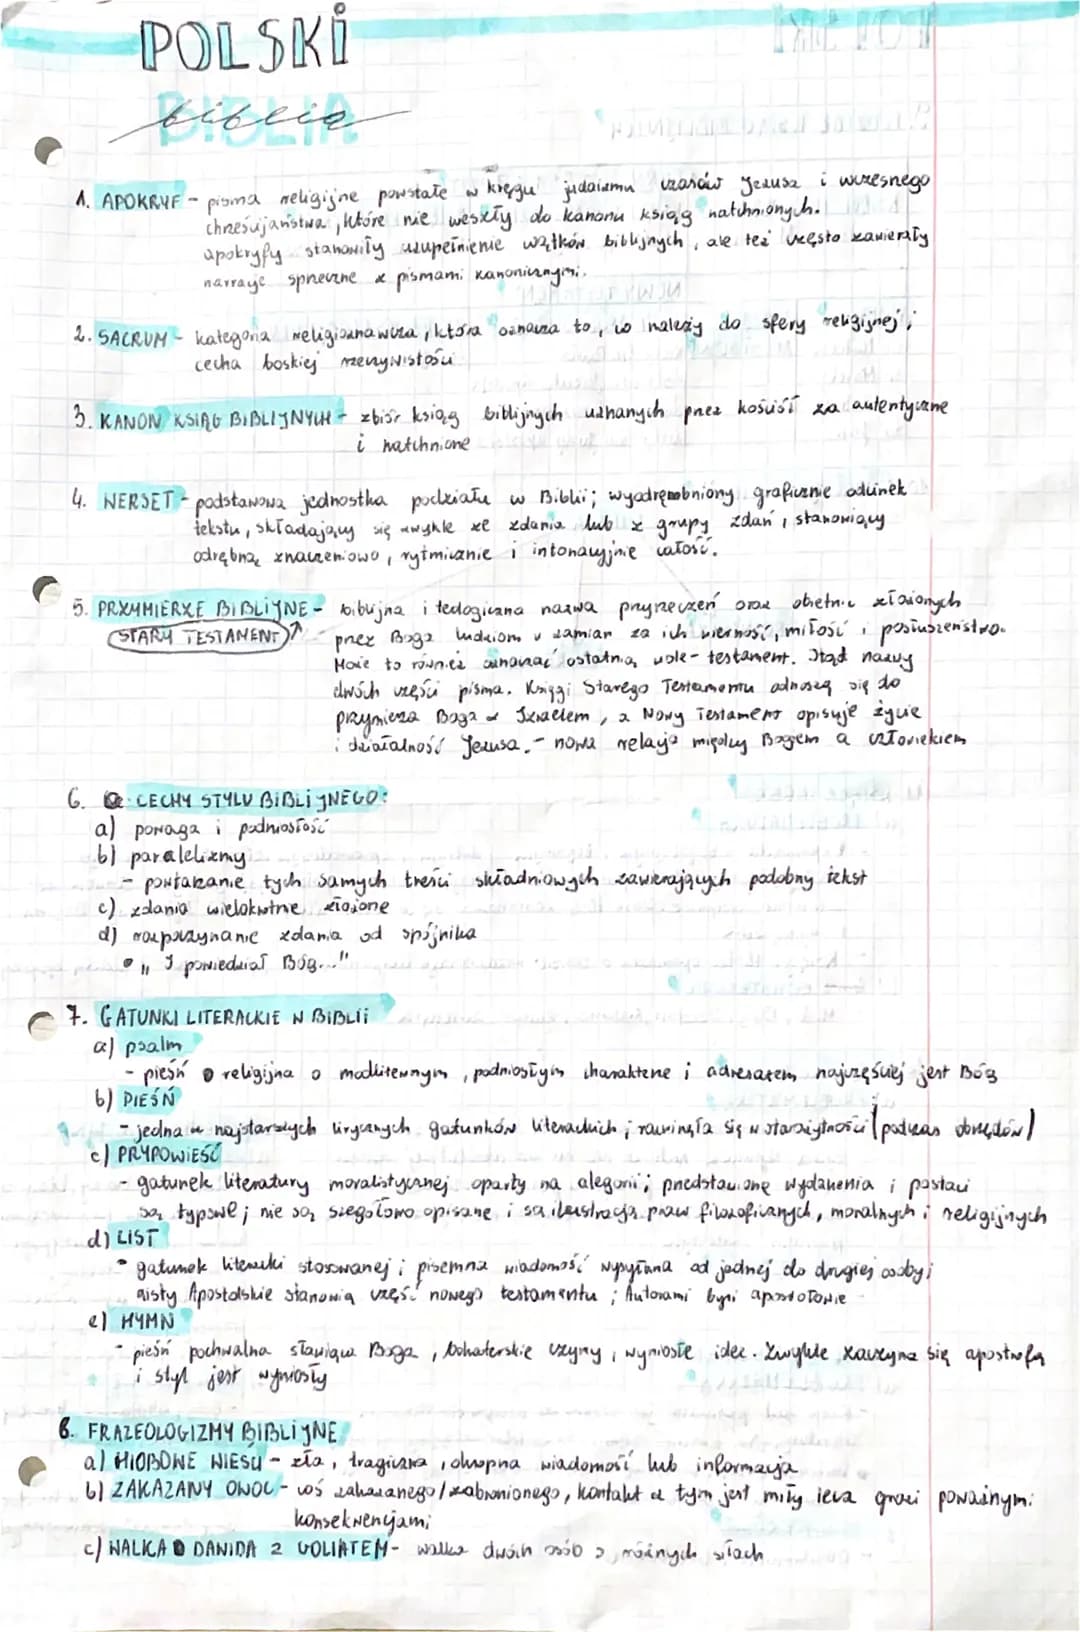 POLSKI
biblia
1. APOKRYF - pisma religijne powstałe w kręgu judaizmu czasów Jezusa i wczesnego
chrześcijaństwa, które nie weszły do kanonu ksiąg natchnionych.
apokryfy stanowiły uzupełnienie wątków biblijnych, ale też często zawierały
narracje sprzeczne z pismami kanonicznymi.
2. SACRUM - kategoria religioznawcza, która oznacza to, co należy do sfery religijnej;
cecha boskiej rzeczywistości
3. KANON KSIĄG BIBLIJNYCH - zbiór ksiąg biblijnych uznanych przez kościół za autentyczne
i natchnione
4. WERSET - podstawowa jednostka podziału w Biblii; wyodrębniony graficznie odcinek
tekstu, składający się zwykle ze zdania lub z grupy zdań, stanowiący
odrębną znaczeniowo, rytmicznie i intonacyjnie całość.
5. PRZYMIERZE BIBLIJNE - biblijna i teologiczna nazwa przyrzeczeń oraz obietnic złożonych
(STARY TESTAMENT) przez Boga ludziom w zamian za ich wierność, miłość i posłuszeństwo.
Może to również oznaczać ostatnią wolę - testament. Stąd nazwy
dwóch części pisma. Księgi Starego Testamentu odnoszą się do
przymierza Boga z Izraelem, a Nowy Testament opisuje życie
i działalność Jezusa. - nowa relacja między Bogiem a człowiekiem
6. CECHY STYLU BIBLIJNEGO:
a) powaga i podniosłość
b) paralelizmy
- powtarzanie tych samych treści składniowych zawierających podobny tekst
c) zdania wielokrotnie złożone
d) rozpoczynanie zdania od spójnika
• „I powiedział Bóg..."
7. GATUNKI LITERACKIE W BIBLII
a) psalm
- pieśń religijna o modlitewnym, podniosłym charakterze i adresatem najczęściej jest Bóg
b) PIEŚŃ
- jedna z najstarszych lirycznych gatunków literackich; rozwinęła się w starożytności (podczas obrzędów)
c) PRYPOWIEŚĆ
- gatunek literatury moralistycznej oparty na alegorii; przedstawione wydarzenia i postaci
są typowe; nie są szegółowo opisane i są ilustracją praw filozoficznych, moralnych i religijnych
d) LIST
- gatunek literacki stosowanej; pisemna wiadomość wysyłana od jednej do drugiej osoby;
Listy Apostolskie stanowią część nowego testamentu; Autorami byli apostołowie
e) HYMN
- pieśń pochwalna sławiąca Boga, bohaterskie czyny, wyniosłe idee. Zwykle zaczyna się apostrofą
i styl jest wyniosły
8. FRAZEOLOGIZMY BIBLIJNE
a) HIOBOWE WIEŚCI - zła, tragiczna, okropna wiadomość lub informacja
b) ZAKAZANY OWOC - coś zakazanego/zabronionego, kontakt z tym jest miły lecz grozi poważnymi
konsekwencjami
c) WALKA DAWIDA Z GOLIATEM - walka dwóch osób o różnych siłach